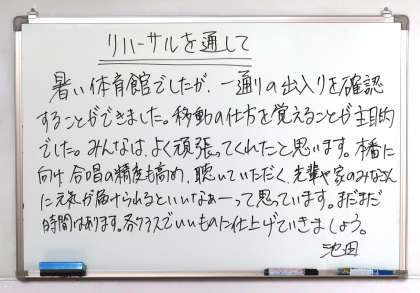 リハーサルを通して
暑い体育館でしたが、一通りの出入りを確認
することができました。移動の仕方を覚えることが主目的
でした。みんなは、よく頑張ってくれたと思います。本番に
向け、合唱の精度も高め、聴いていただく、先輩や家のみなさん
に元気が届けられるといいなぁーって思っています。まだまだ
時間はあります。各クラスでいいものに仕上げていきましょう。
池田